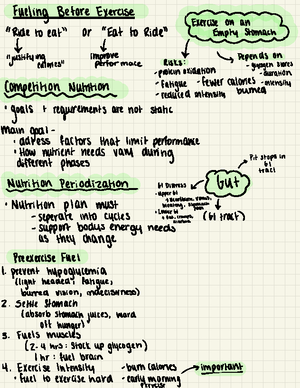 Fueling Before Exercise
"Ride to eat" or "Eat to Ride"
"justifying calories"
improve performace
Exercise on an
Empty Stomach
Risks:
- protein oxidation
- Fatigue - fewer calories burned
- reduced intensity
Depends on
- glycogen stores
- duration
- intensity
Competition Nutrition
• goals + requirements are not static
Main goal -
• address factors that limit performance
• How nutrient needs vary during
different phases
Nutrition Periodization
• Nutrition plan must
- seperate into cycles
- support bodys energy needs
as they change
Gut
Pit stops in
GI
tract
GI Distress
- Upper GI
- Lower GI
(GI tract)
Preexercise Fuel
1. prevent hypoglycemia
(light headed, fatigue,
blurred vision, indecisivness)
2. Settle Stomach
(absorb stomach juices, ward
off hunger)
3. Fuels muscles
(2-4 hrs: stock up glycogen)
1 hr: fuel brain
4. Exercise Intensity - burn calories → important
• fuel to exercise hard - early morning
exercise